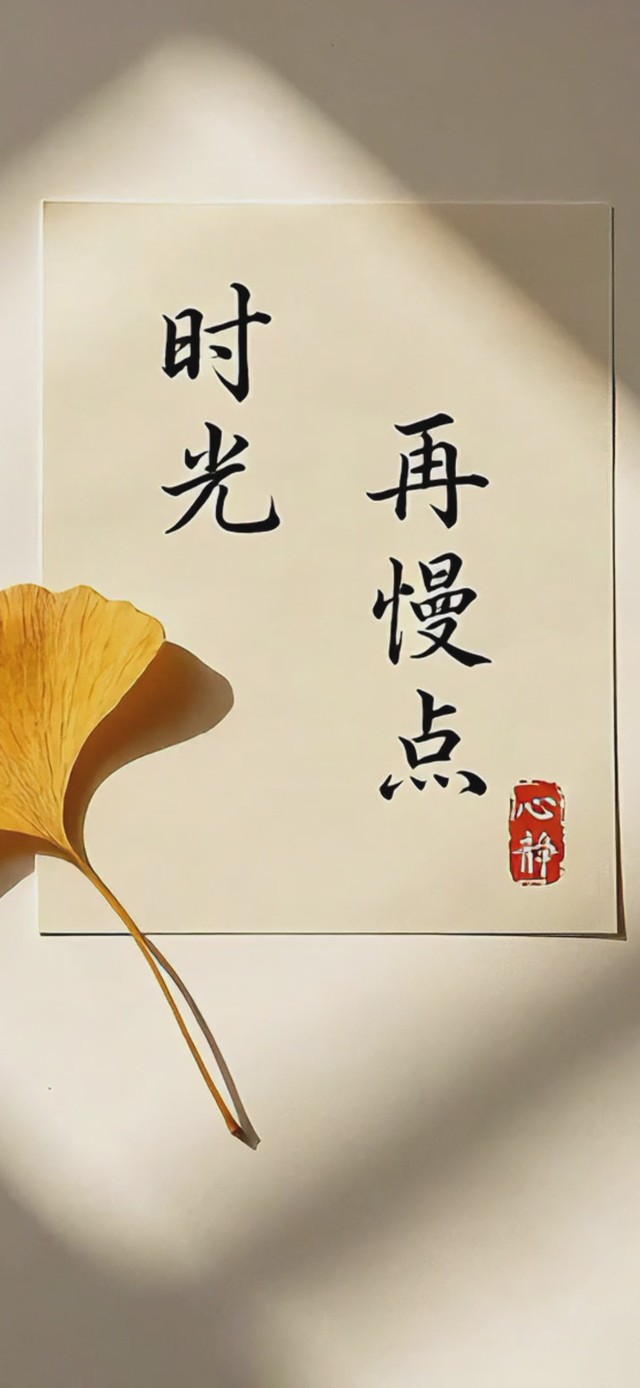 时光
再慢点
心静